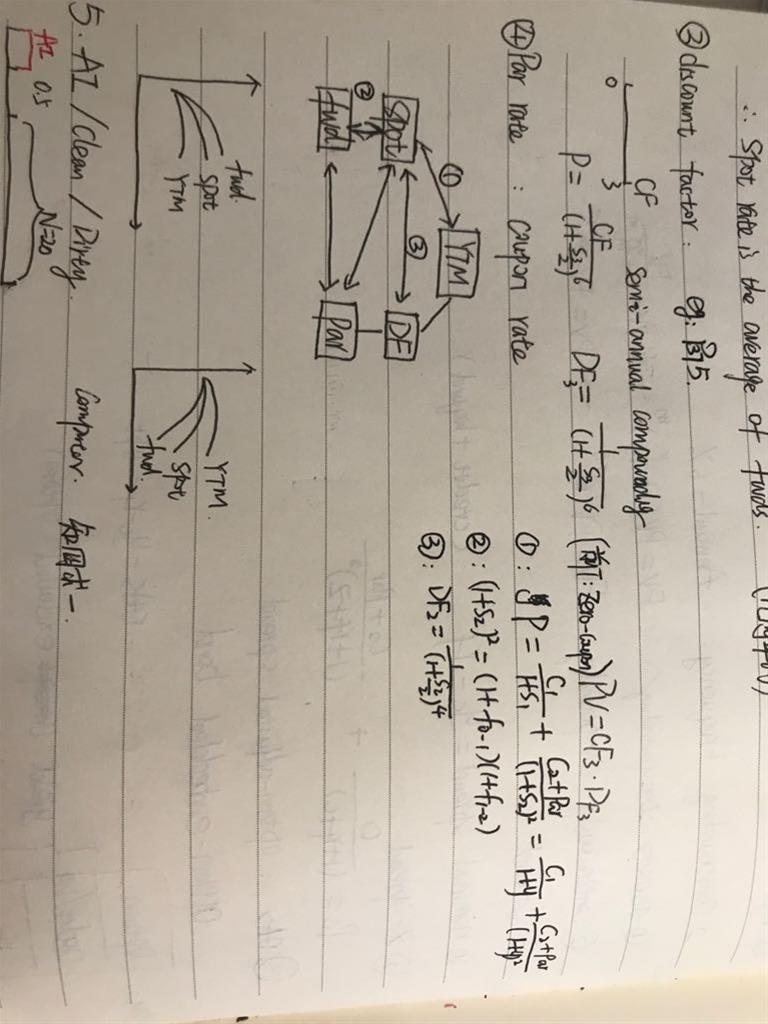 ∴ Spot rate is the average of fwds.
③ discount factor: eg:
0 3 CF semi-annual compounding
P = CF/(1+S₃/2)⁶ DF₃ = 1/(1+S₃/2)⁶ (前T: Zero-coupon) PV = CF₃·DF₃
④ Par rate : coupon rate
①: P = C₁/(1+S₁) + (C₂+Par)/(1+S₂)² = C₁/(1+y) + (C₂+Par)/(1+y)²
②: (1+S₂)² = (1+f₀₋₁)(1+f₁₋₂)
③: DF₂ = 1/(1+S₂/2)⁴
① YTM
Spot ③ DF
②
fwd Par
fwd. YTM.
Spot Spot
YTM fwd.
5. AI / Clean / Dirty. Compreer.
AI 0.5 N=20